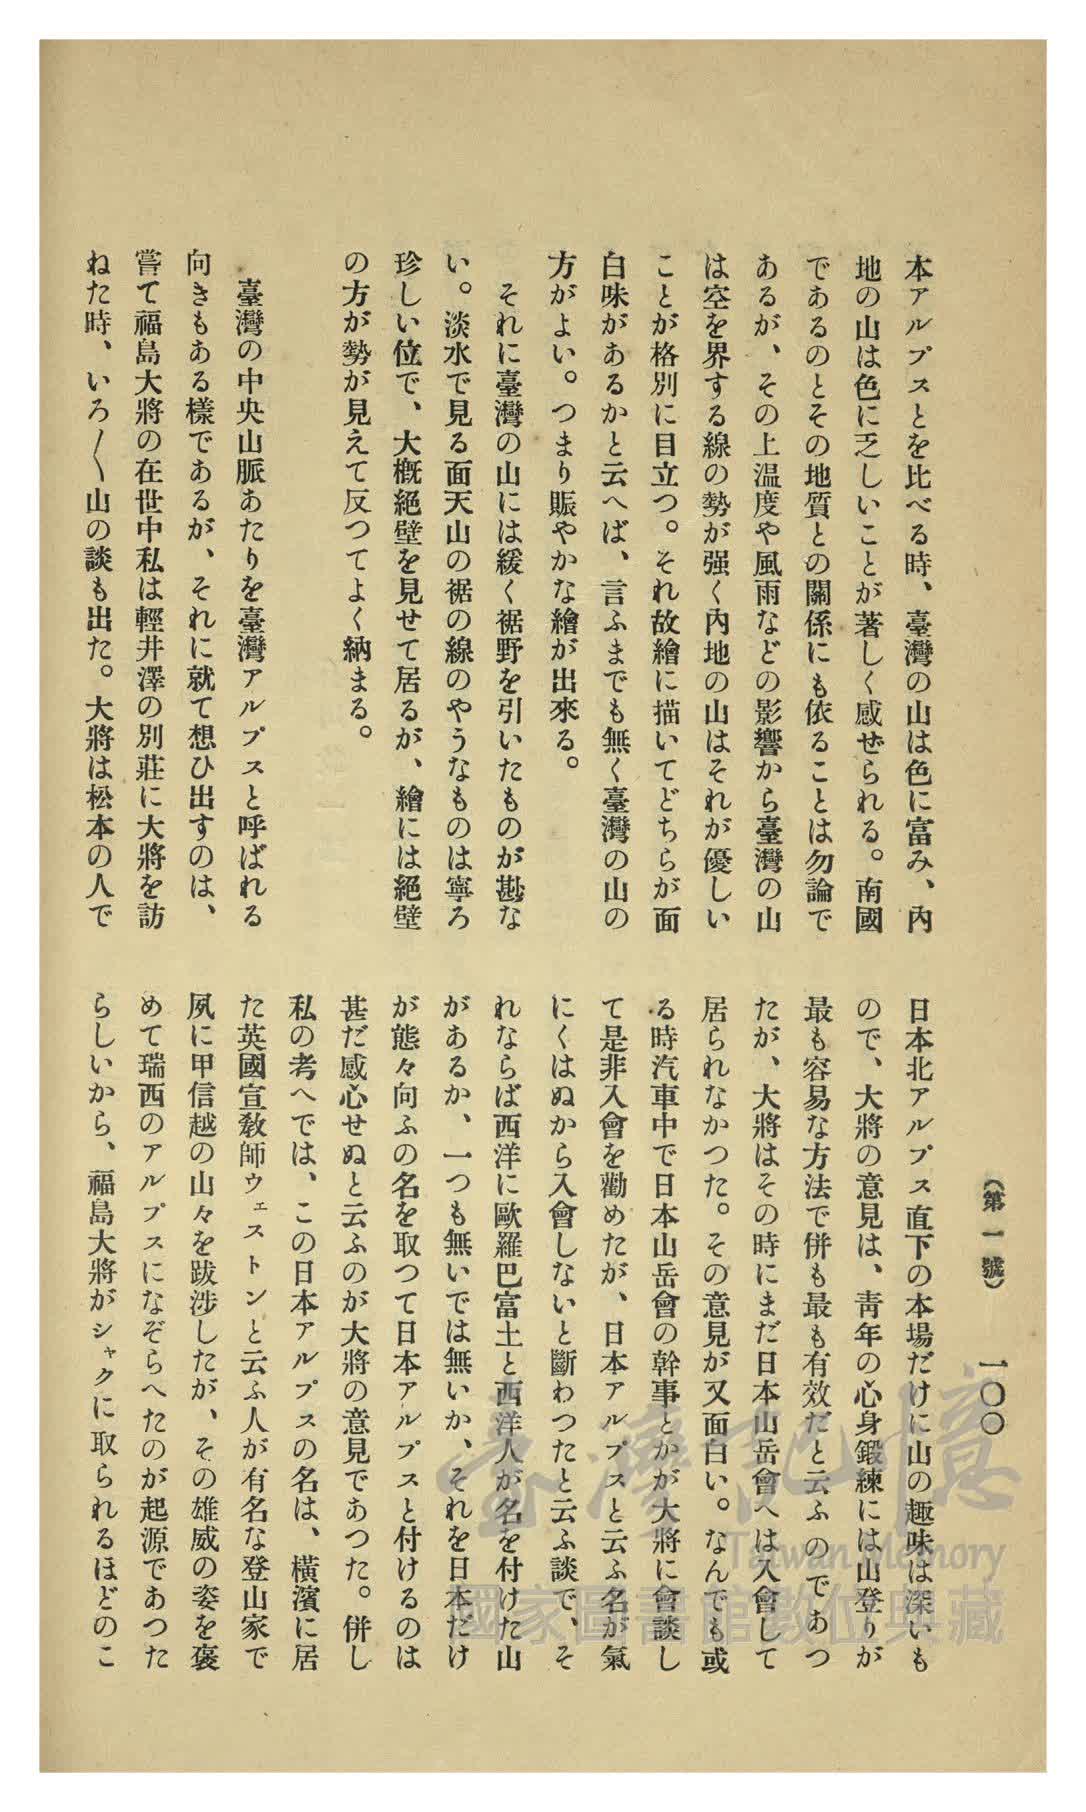 (第一號)
一〇〇
本アルプスとを比べる時、臺灣の山は色に富み、內
地の山は色に乏しいことが著しく感ぜられる。南國
であるのとその地質との關係にも依ることは勿論で
あるが、その上溫度や風雨などの影響から臺灣の山
は空を界する線の勢が强く內地の山はそれが優しい
ことが格別に目立つ。それ故繪に描いてどちらが面
白味があるかと云へば、言ふまでも無く臺灣の山の
方がよい。つまり賑やかな繪が出來る。
それに臺灣の山には緩く裾野を引いたものが尠な
い。淡水で見る面天山の裾の線のやうなものは寧ろ
珍しい位で、大槪絕壁を見せて居るが、繪には絕壁
の方が勢が見えて反つてよく納まる。
臺灣の中央山脈あたりを臺灣アルプスと呼ばれる
向きもある樣であるが、それに就て想ひ出すのは、
嘗て福島大將の在世中私は輕井澤の別莊に大將を訪
ねた時、いろ〱山の談も出た。大將は松本の人で
日本北アルプス直下の本場だけに山の趣味は深いも
ので、大將の意見は、靑年の心身鍛練には山登りが
最も容易な方法で併も最も有效だと云ふのであつ
たが、大將はその時にまだ日本山岳會へは入會して
居られなかつた。その意見が又面白い。なんでも或
る時汽車中で日本山岳會の幹事とかが大將に會談し
て是非入會を勸めたが、日本アルプスと云ふ名が氣
にくはぬから入會しないと斷わつたと云ふ談で、そ
れならば西洋に歐羅巴富士と西洋人が名を付けた山
があるか、一つも無いでは無いか、それを日本だけ
が態々向ふの名を取つて日本アルプスと付けるのは
甚だ感心せぬと云ふのが大將の意見であつた。併し
私の考へでは、この日本アルプスの名は、橫濱に居
た英國宣敎師ウェストンと云ふ人が有名な登山家で
夙に甲信越の山々を跋涉したが、その雄威の姿を褒
めて瑞西のアルプスになぞらへたのが起源であつた
らしいから、福島大將がシャクに取られるほどのこ
臺灣記憶
Taiwan Memory
國家圖書館數位典藏